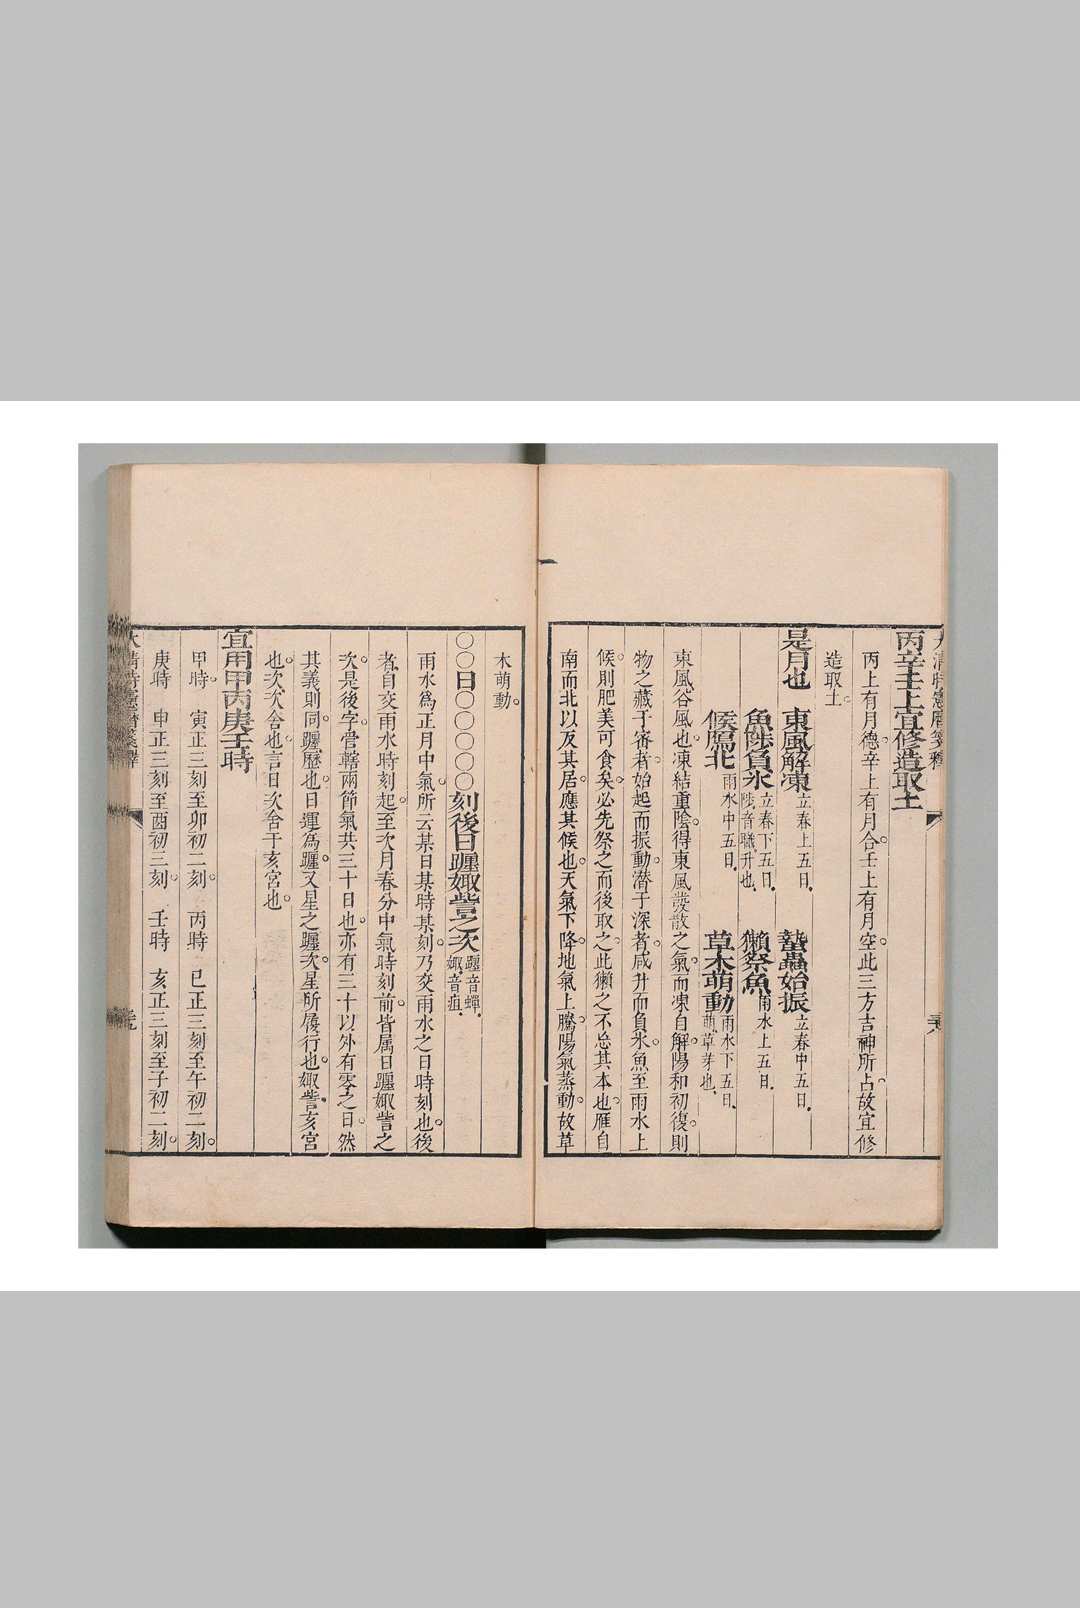 大清時憲曆箋釋
丙辛壬上宜修造取土
丙上有月德辛上有月合壬上有月空此三方吉神所占故宜修
造取土
是月也 東風解凍 立春上五日 蟄蟲始振 立春中五日
魚陟負氷 立春下五日陟音職升也 獺祭魚 雨水上五日
候鴈北 雨水中五日 草木萌動 雨水下五日萌草芽也
東風谷風也凍結重陰得東風發散之氣而凍自解陽和初復則
物之藏于密者始起而振動潛于深者咸升而負氷魚至雨水上
候則肥美可食矣必先祭之而後取之此獺之不忘其本也雁自
南而北以及其居應其候也天氣下降地氣上騰陽氣蒸動故草
木萌動
〇〇日〇〇〇〇〇刻後日躔娵訾之次 躔音蟬娵音疽
雨水為正月中氣所云某日某時某刻乃交雨水之日時刻也後
者自交雨水時刻起至次月春分中氣時刻前皆属日躔娵訾之
次是後字管轄兩節氣共三十日也亦有三十以外有零之日然
其義則同躔歷也日運為躔又星之躔次星所履行也娵訾亥宮
也次次舍也言日次舍于亥宮也
宜用甲丙庚壬時
甲時 寅正三刻至卯初二刻 丙時 巳正三刻至午初二刻
庚時 申正三刻至酉初三刻 壬時 亥正三刻至子初二刻
大清時憲曆箋釋